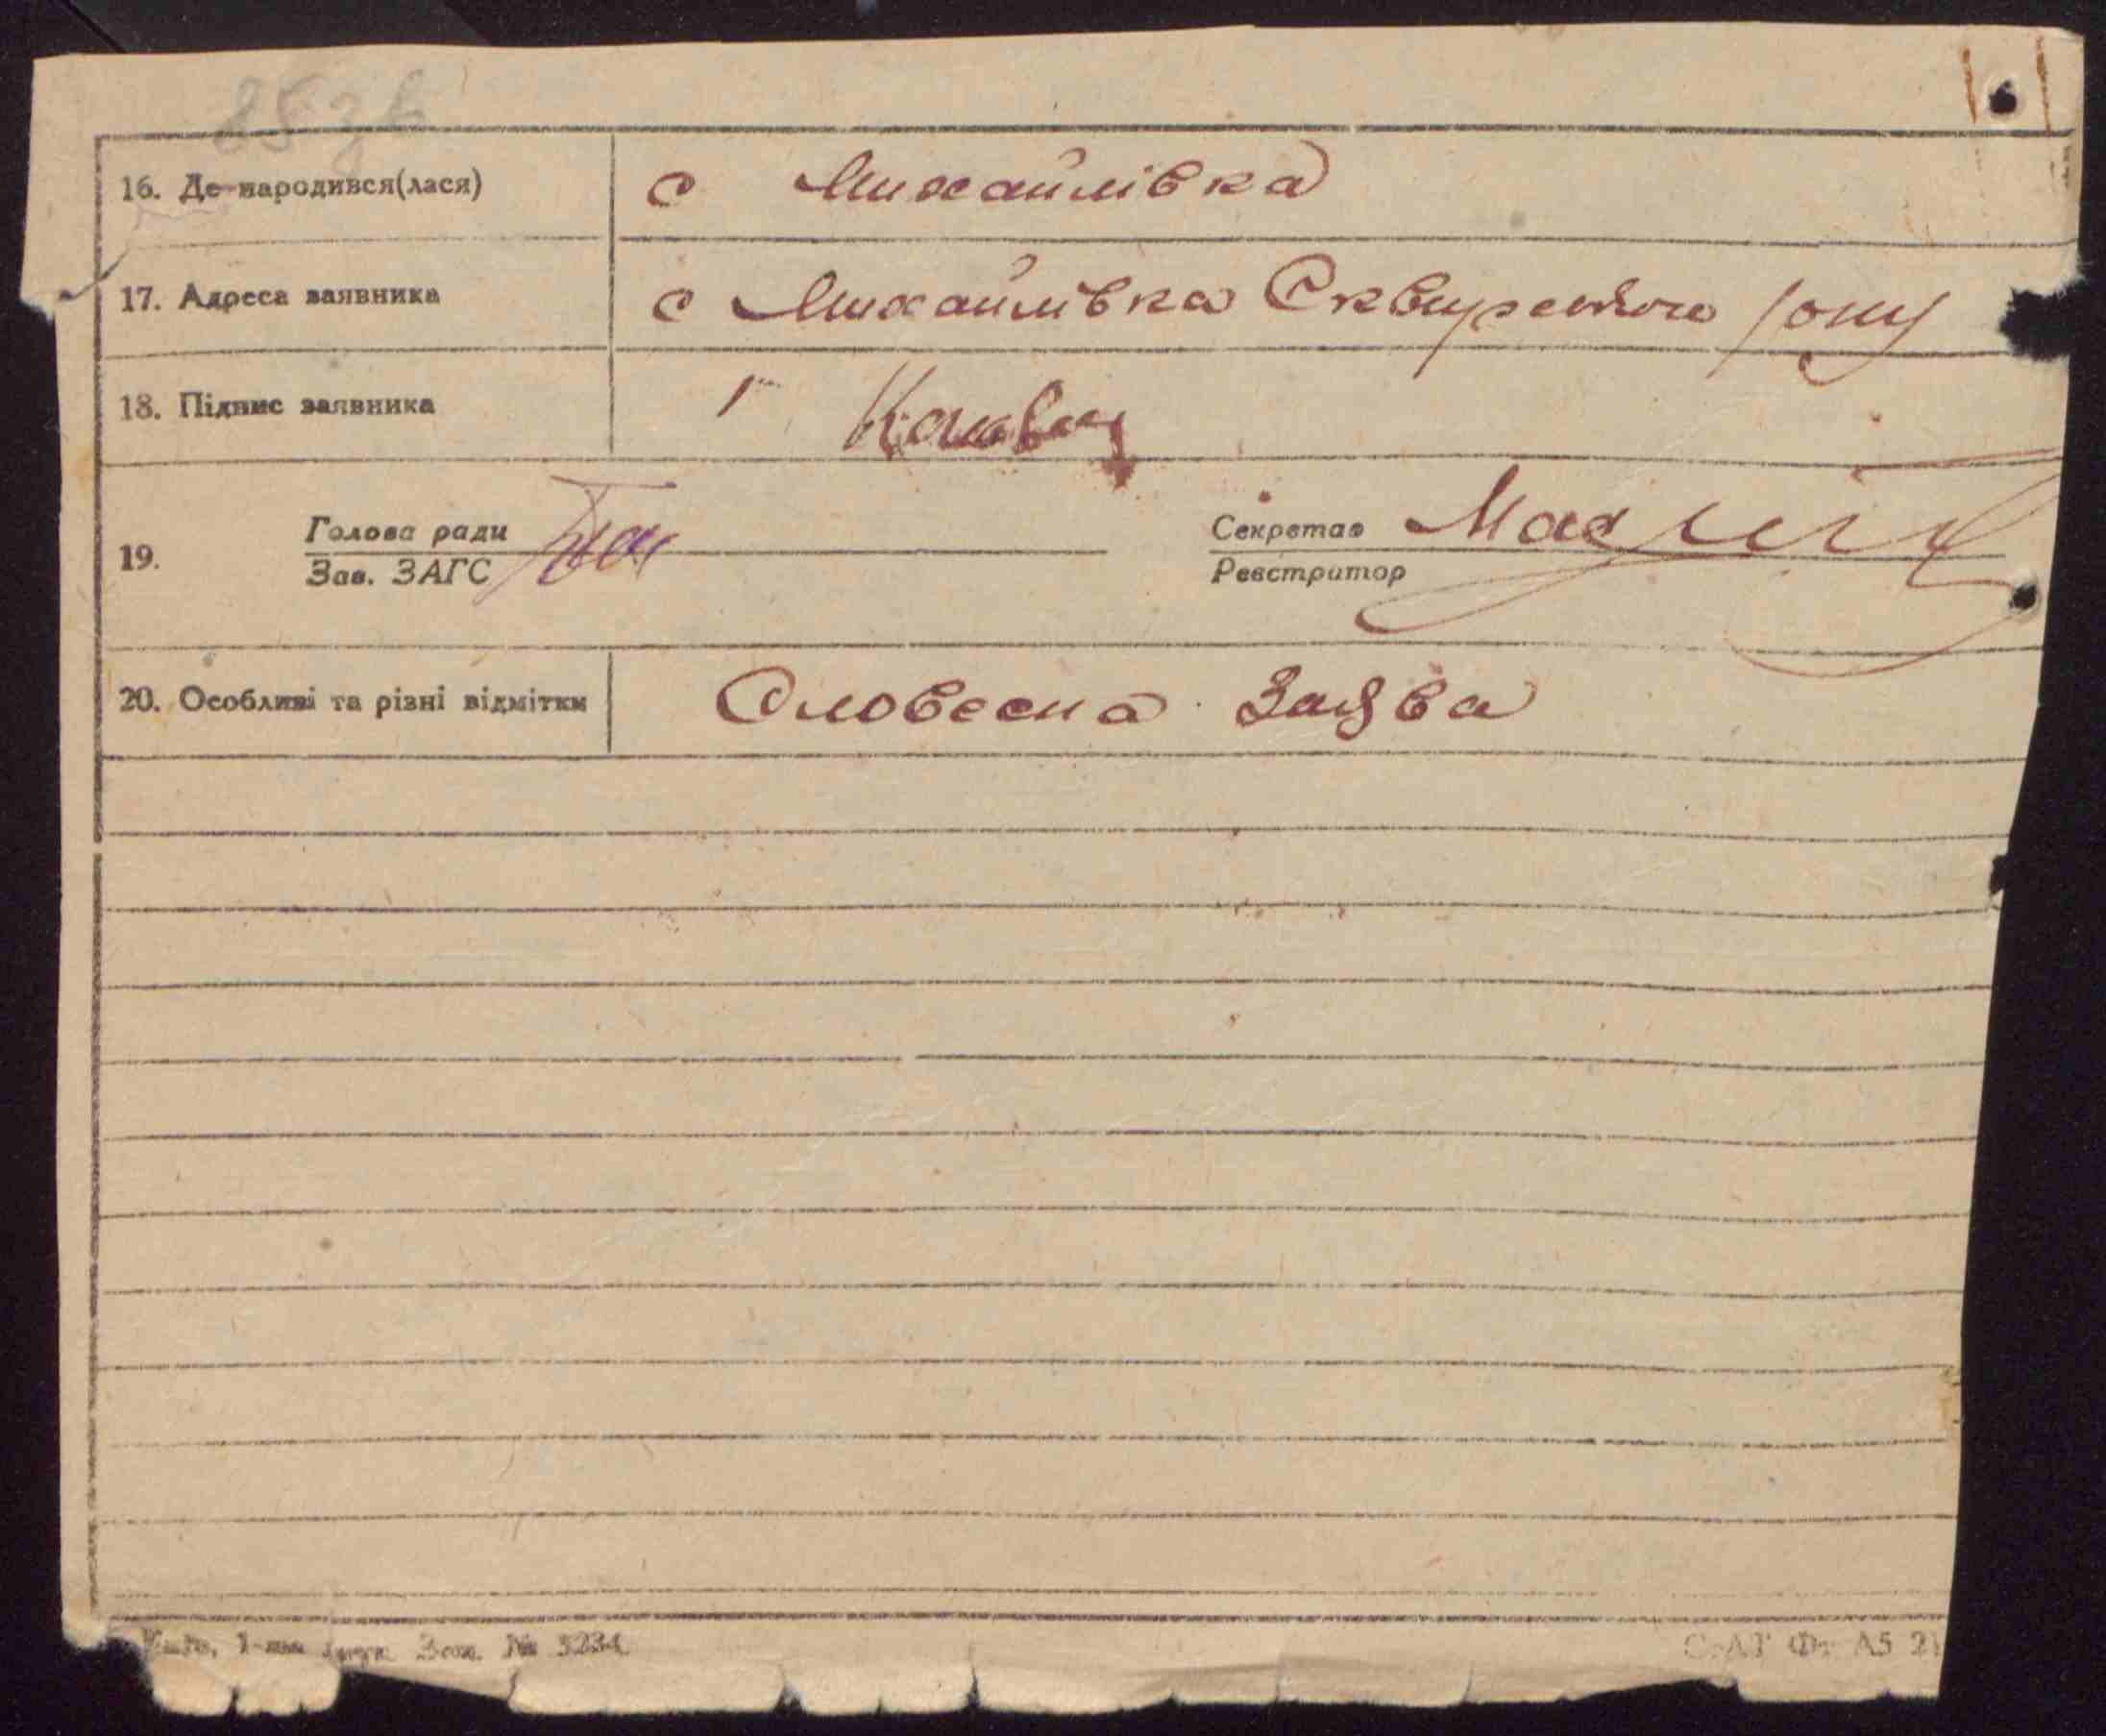 85 зв
16. Де народився(лася) с Михайлівка
17. Адреса заявника с Михайлівка Сквирського р/ону
18. Підпис заявника
19. Голова ради Секретар
Зав. ЗАГС Реєстратор
20. Особливі та різні відмітки Словесна заява
Київ, 1-ша друк. Зам. № 3234